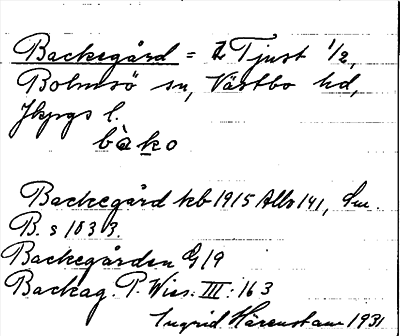 Backegård = Tjust 1/2,
Bolmsö sn, Västbo hd,
Jkpgs l.
bàko
Backegård kb 1915 Allb 141, Sm.
B. s 1033.
Backegården G 19
Backag. P. Wies. III: 163
Ingrid Härenstam 1931